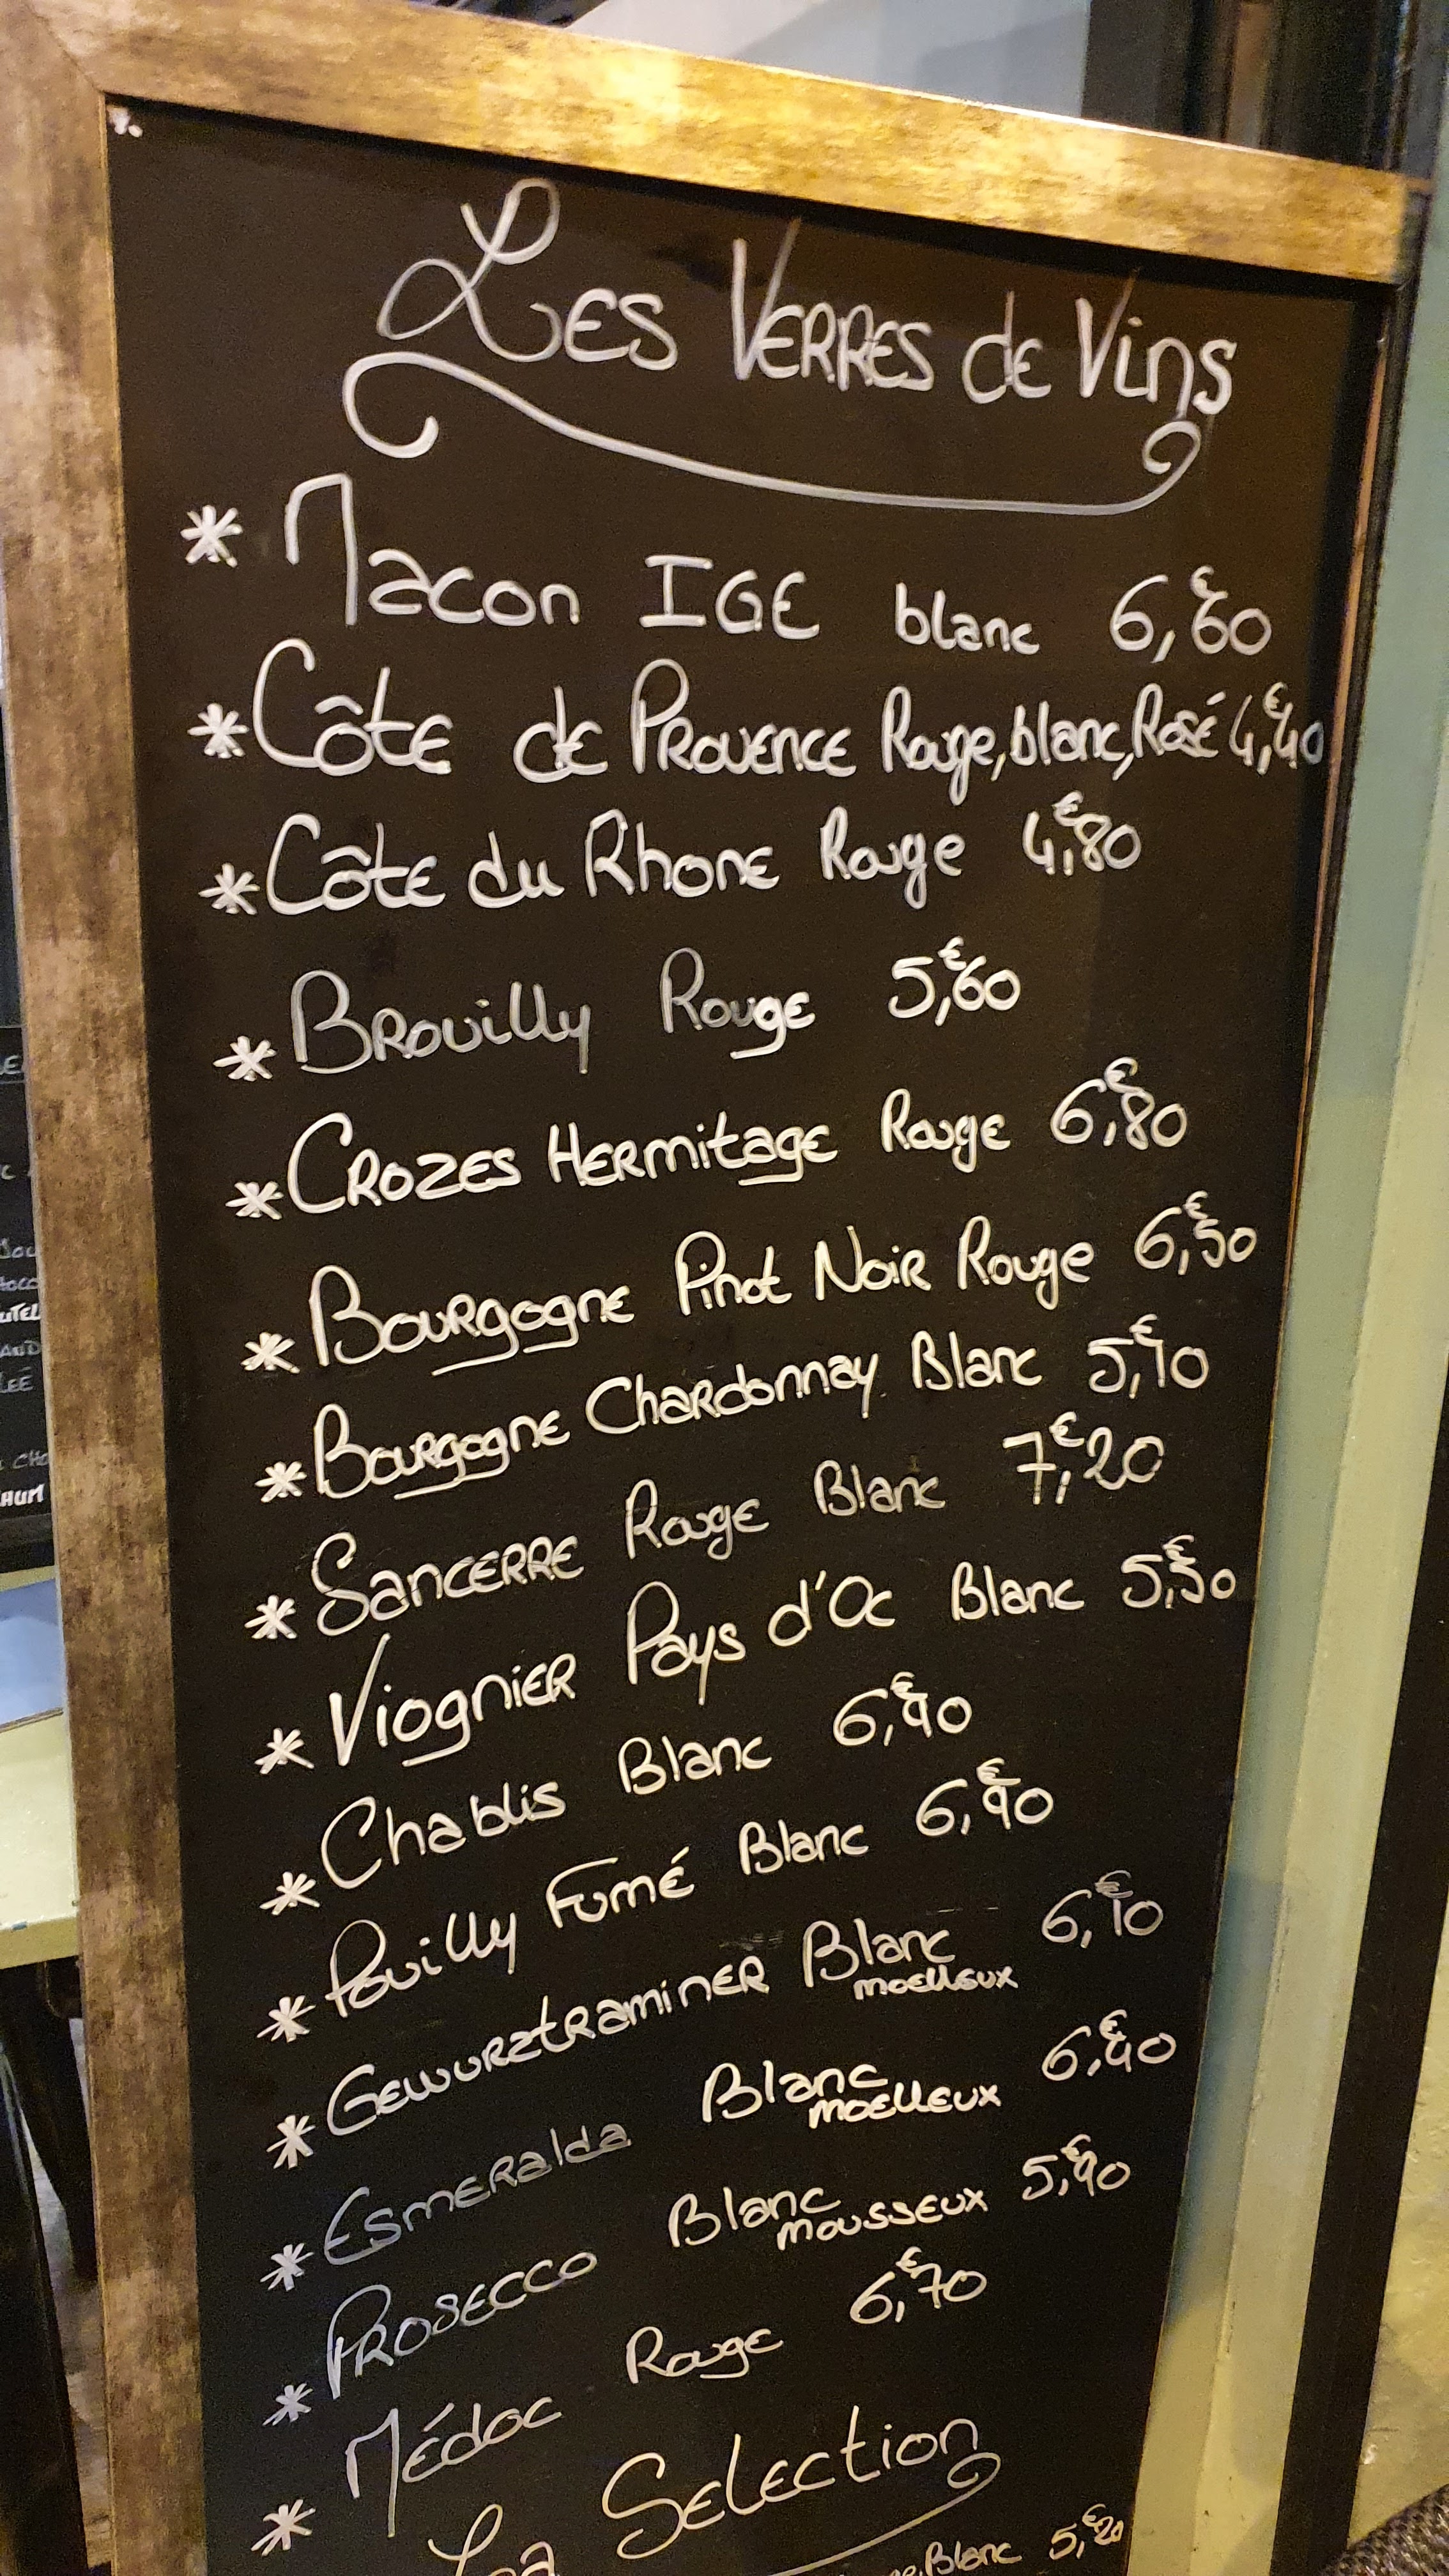 Les Verres de Vins
* Macon IGE blanc 6,€60
* Côte de Provence Rouge, blanc, Rosé 4,€40
* Côte du Rhone Rouge 4,€80
* Brouilly Rouge 5,€60
* Crozes Hermitage Rouge 6,€80
* Bourgogne Pinot Noir Rouge 6,€50
* Bourgogne Chardonnay Blanc 5,€10
* Sancerre Rouge Blanc 7,€20
* Viognier Pays d'Oc Blanc 5,€50
* Chablis Blanc 6,€90
* Pouilly Fumé Blanc 6,€90
* Gewurztraminer Blanc moelleux 6,€10
* Esmeralda Blanc moelleux 6,€40
* Prosecco Blanc mousseux 5,€90
* Médoc Rouge 6,€70
La Selection
Blanc 5,€20